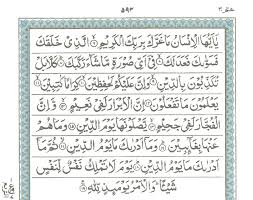 ٥٩٣
يٰٓاَيُّهَا الْاِنْسَانُ مَا غَرَّكَ بِرَبِّكَ الْكَرِيْمِ ۝ الَّذِيْ خَلَقَكَ
فَسَوّٰىكَ فَعَدَلَكَ ۝ فِيْٓ اَيِّ صُوْرَةٍ مَّا شَآءَ رَكَّبَكَ ۝ كَلَّا بَلْ
تُكَذِّبُوْنَ بِالدِّيْنِ ۝ وَاِنَّ عَلَيْكُمْ لَحٰفِظِيْنَ ۝ كِرَامًا كَاتِبِيْنَ ۝
يَعْلَمُوْنَ مَا تَفْعَلُوْنَ ۝ اِنَّ الْاَبْرَارَ لَفِيْ نَعِيْمٍ ۝ وَاِنَّ
الْفُجَّارَ لَفِيْ جَحِيْمٍ ۝ يَّصْلَوْنَهَا يَوْمَ الدِّيْنِ ۝ وَمَا هُمْ
عَنْهَا بِغَآئِبِيْنَ ۝ وَمَآ اَدْرٰىكَ مَا يَوْمُ الدِّيْنِ ۝ ثُمَّ مَآ
اَدْرٰىكَ مَا يَوْمُ الدِّيْنِ ۝ يَوْمَ لَا تَمْلِكُ نَفْسٌ لِّنَفْسٍ
شَيْـًٔا ۭ وَالْاَمْرُ يَوْمَئِذٍ لِّلّٰهِ ۝